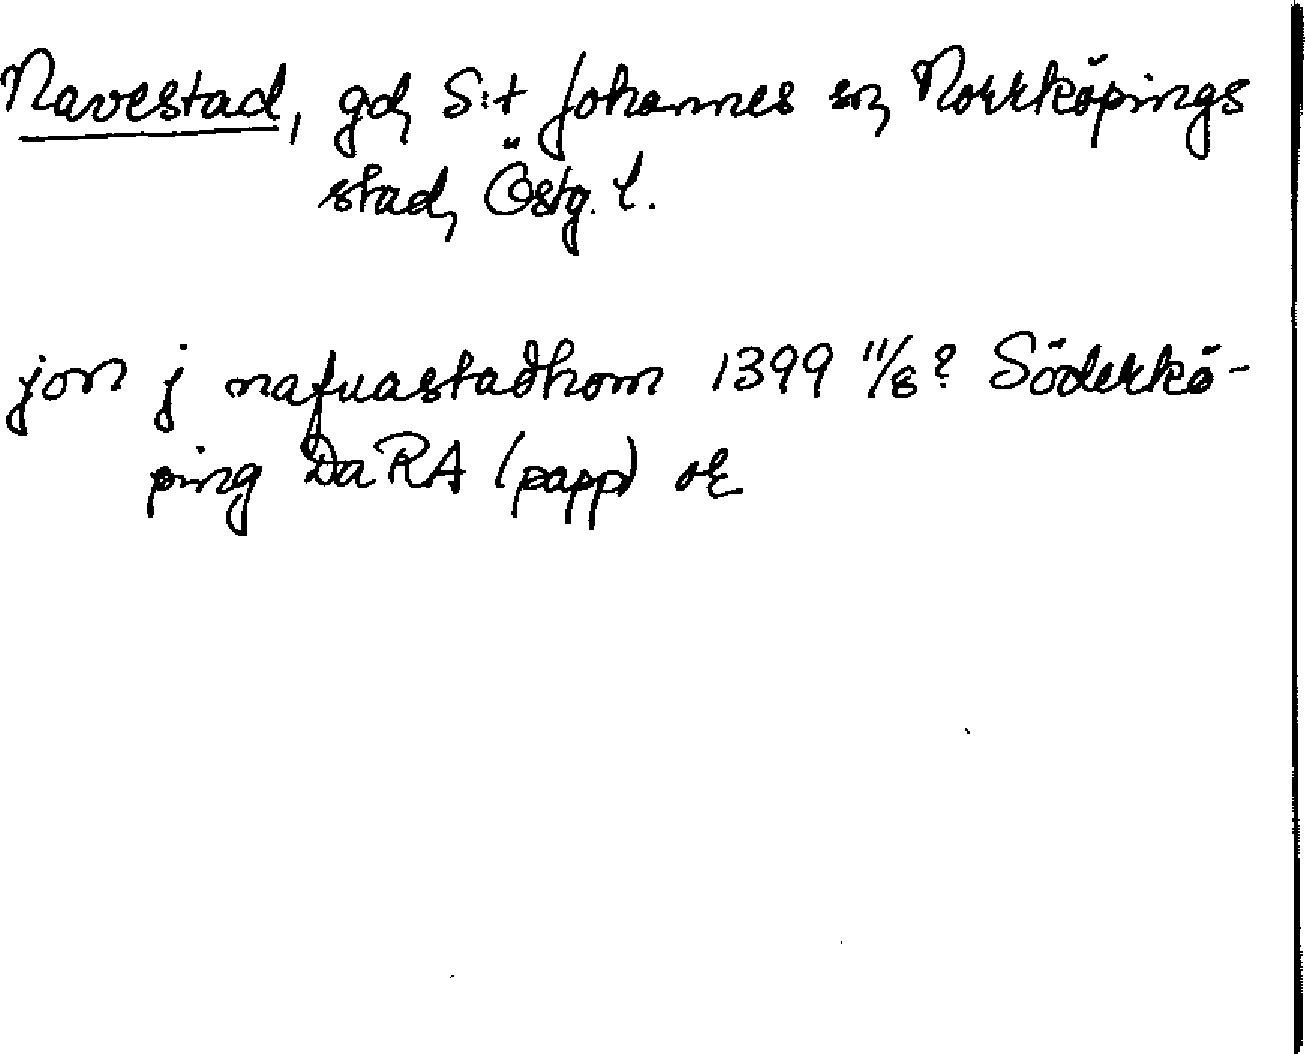 Navestad, gd, S:t Johannes sn, Norrköpings
stad, Östg. l.
jon j nafuastadhom 1399 11/8? Söderkö-
ping DaRA (papp) or